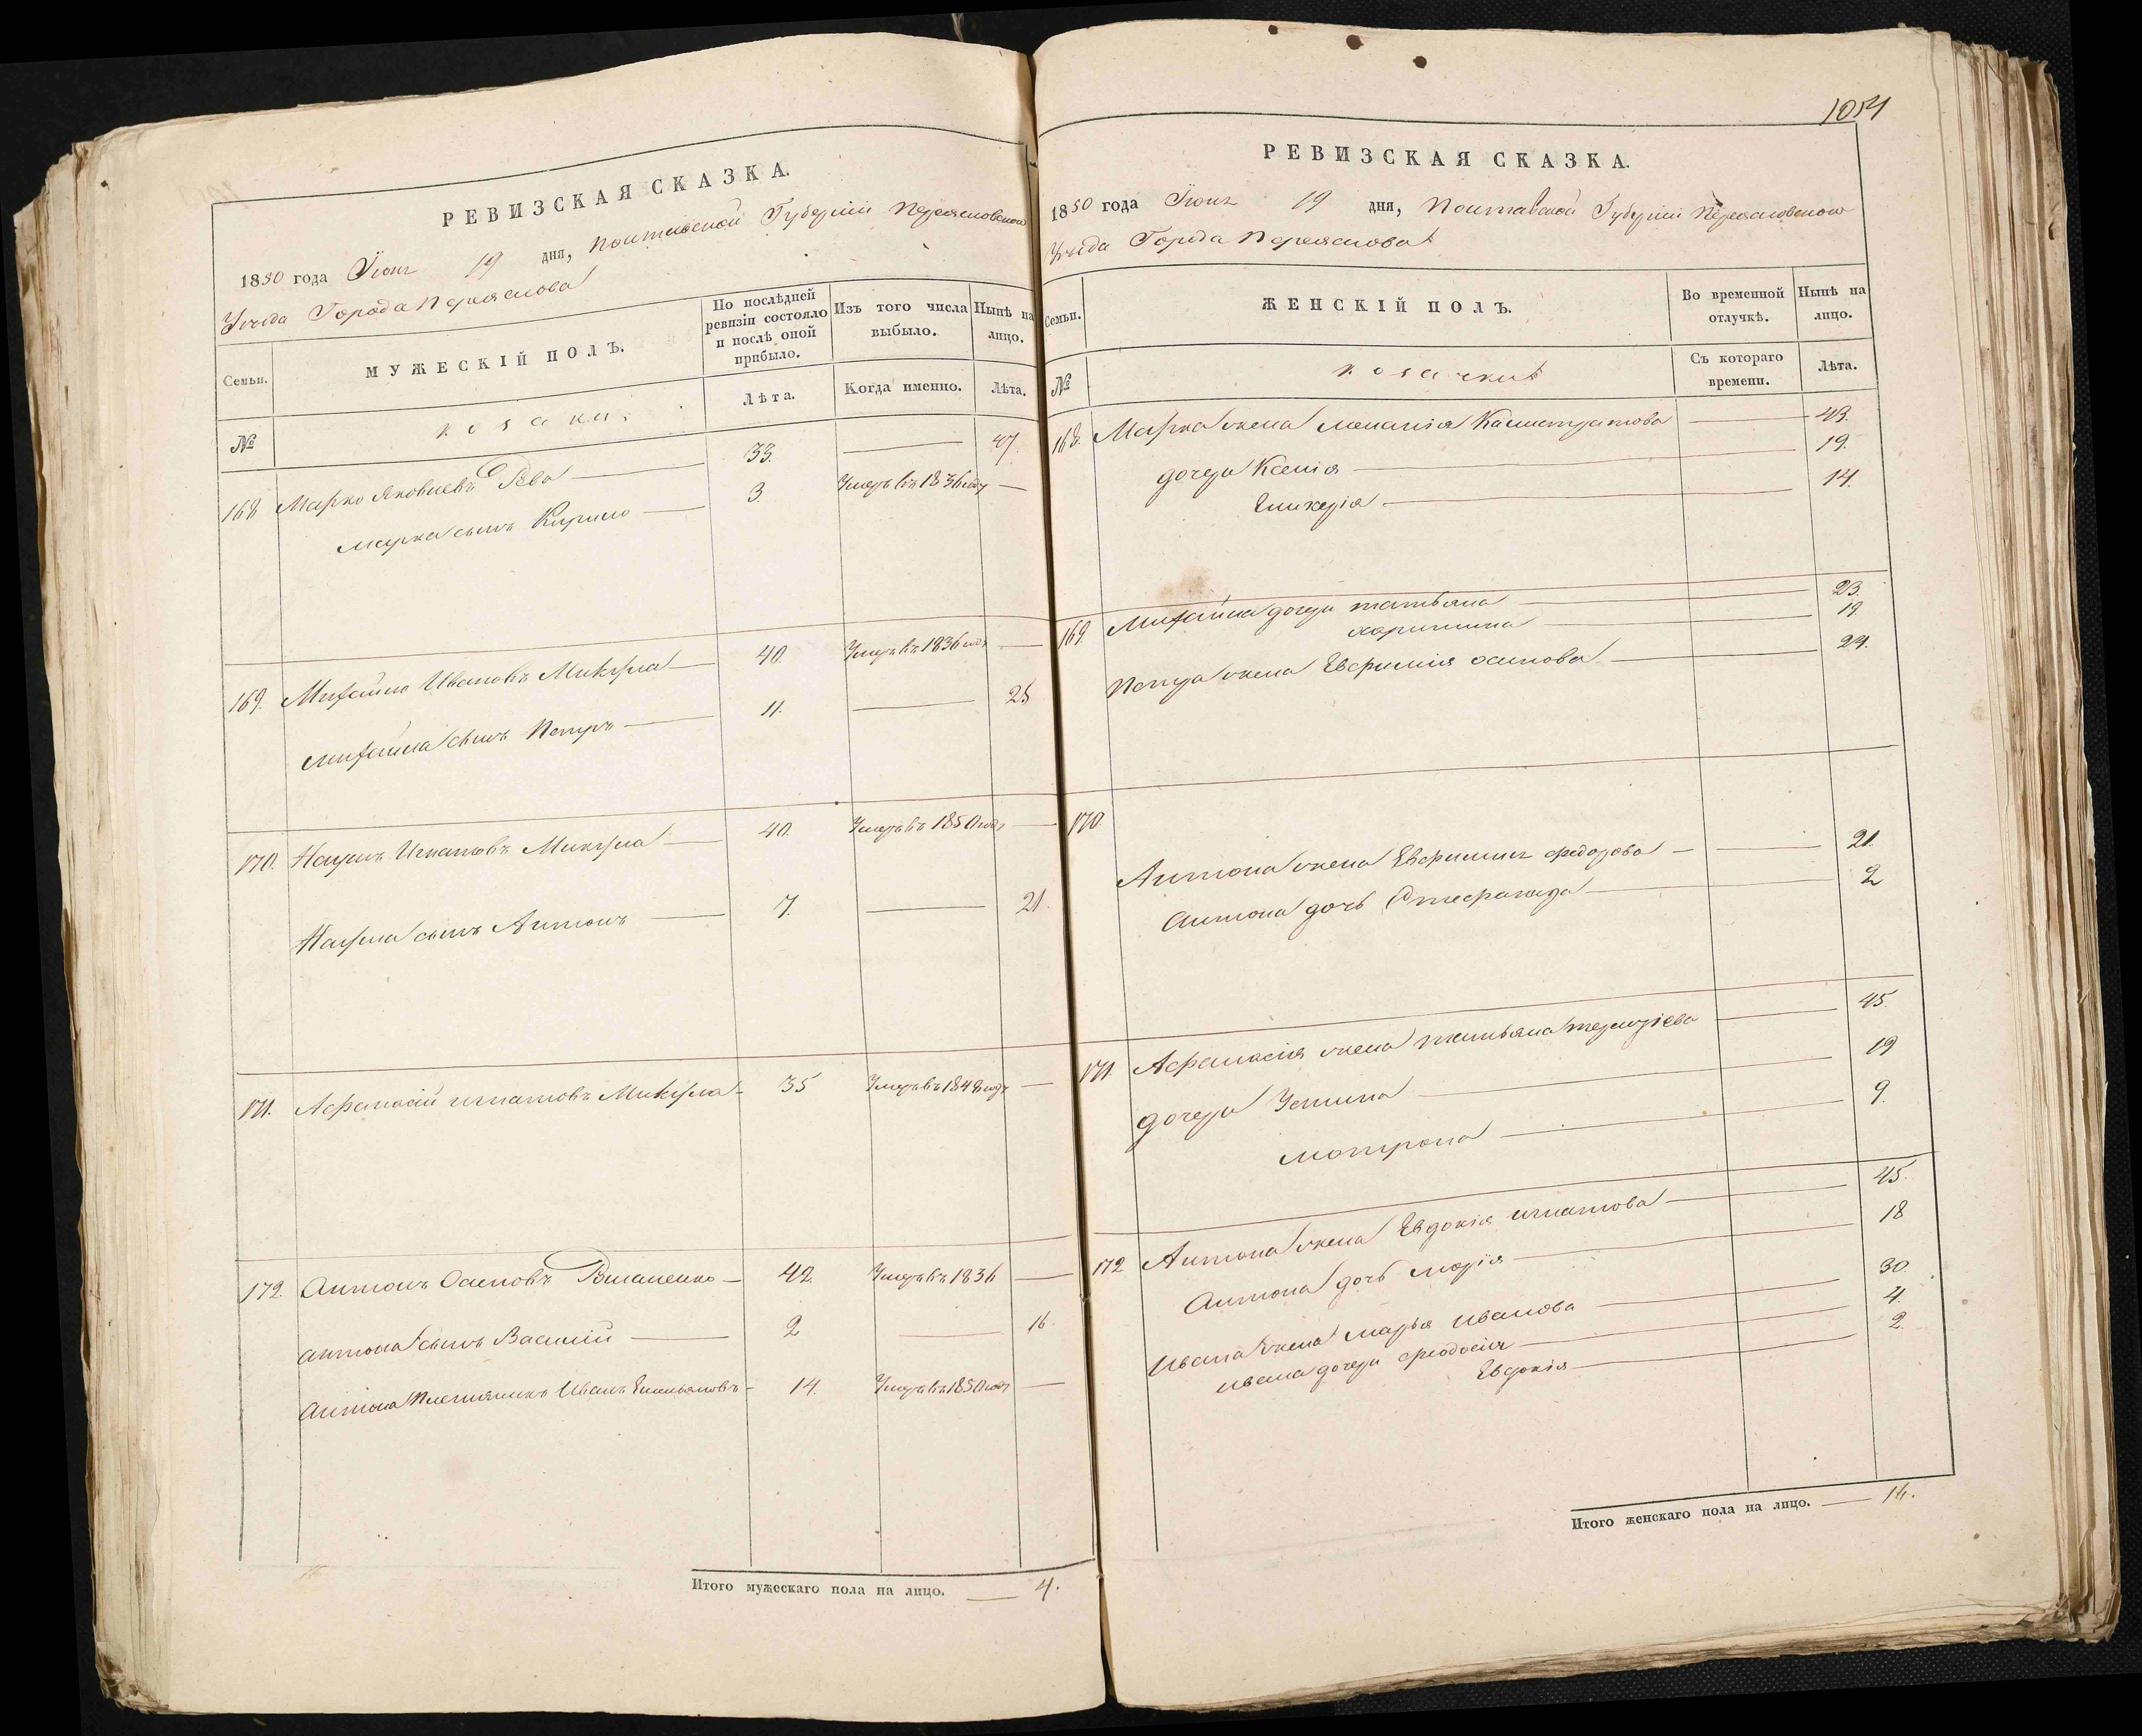 РЕВИЗСКАЯ СКАЗКА.
1850 года Іюня 19 дня, Полтавской Губерніи Переясловскаго
Уѣзда Города Переяслова
Семьи.
МУЖЕСКІЙ ПОЛЪ.
По послѣдней ревизіи состояло и послѣ оной прибыло.
Изъ того числа выбыло.
Нынѣ на лицо.
№
козаки.
Лѣта.
Когда именно.
Лѣта.
168 Марко Яковлевъ Рева 33. 47.
Марка сынъ Кирило 3. Умеръ въ 1836 году
169. Михайло Ивановъ Микула 40. Умеръ въ 1836 году
Михайла сынъ Петръ 11. 25
170. Наумъ Игнатовъ Микула 40. Умеръ въ 1850 году
Наума сынъ Антонъ 7. 21.
171. Афанасій Игнатовъ Микула 35 Умеръ въ 1848 году
172. Антонъ Осиповъ 42. Умеръ въ 1836
Антона сынъ Василій 2 16.
Антона племянникъ Иванъ Емельяновъ 14. Умеръ въ 1850 году
Итого мужескаго пола на лицо. 4.
1054
РЕВИЗСКАЯ СКАЗКА.
1850 года Іюня 19 дня, Полтавской Губерніи Переясловскаго
Уѣзда Города Переяслова
Семьи.
ЖЕНСКІЙ ПОЛЪ.
Во временной отлучкѣ.
Нынѣ на лицо.
№
козачки
Съ котораго времени.
Лѣта.
168. Марка жена Меланія Калистратова 43.
дочери Ксенія 19.
Гликерія 14.
169 Михайла дочери Татьяна 23.
Харитина 19.
Петра жена Евфимія Осипова 24.
170.
Антона жена Евфимия Федорова 21.
Антона дочь Стефанида 2
171 Афанасія жена Татьяна Терентіева 45.
дочери Устина 19
Мотрона 9.
172 Антона жена Евдокія Игнатова 45.
Антона дочь Марія 18
Ивана жена Марья Иванова 30
Ивана дочери Феодосія 4.
Евдокія 2.
Итого женскаго пола на лицо. 16.